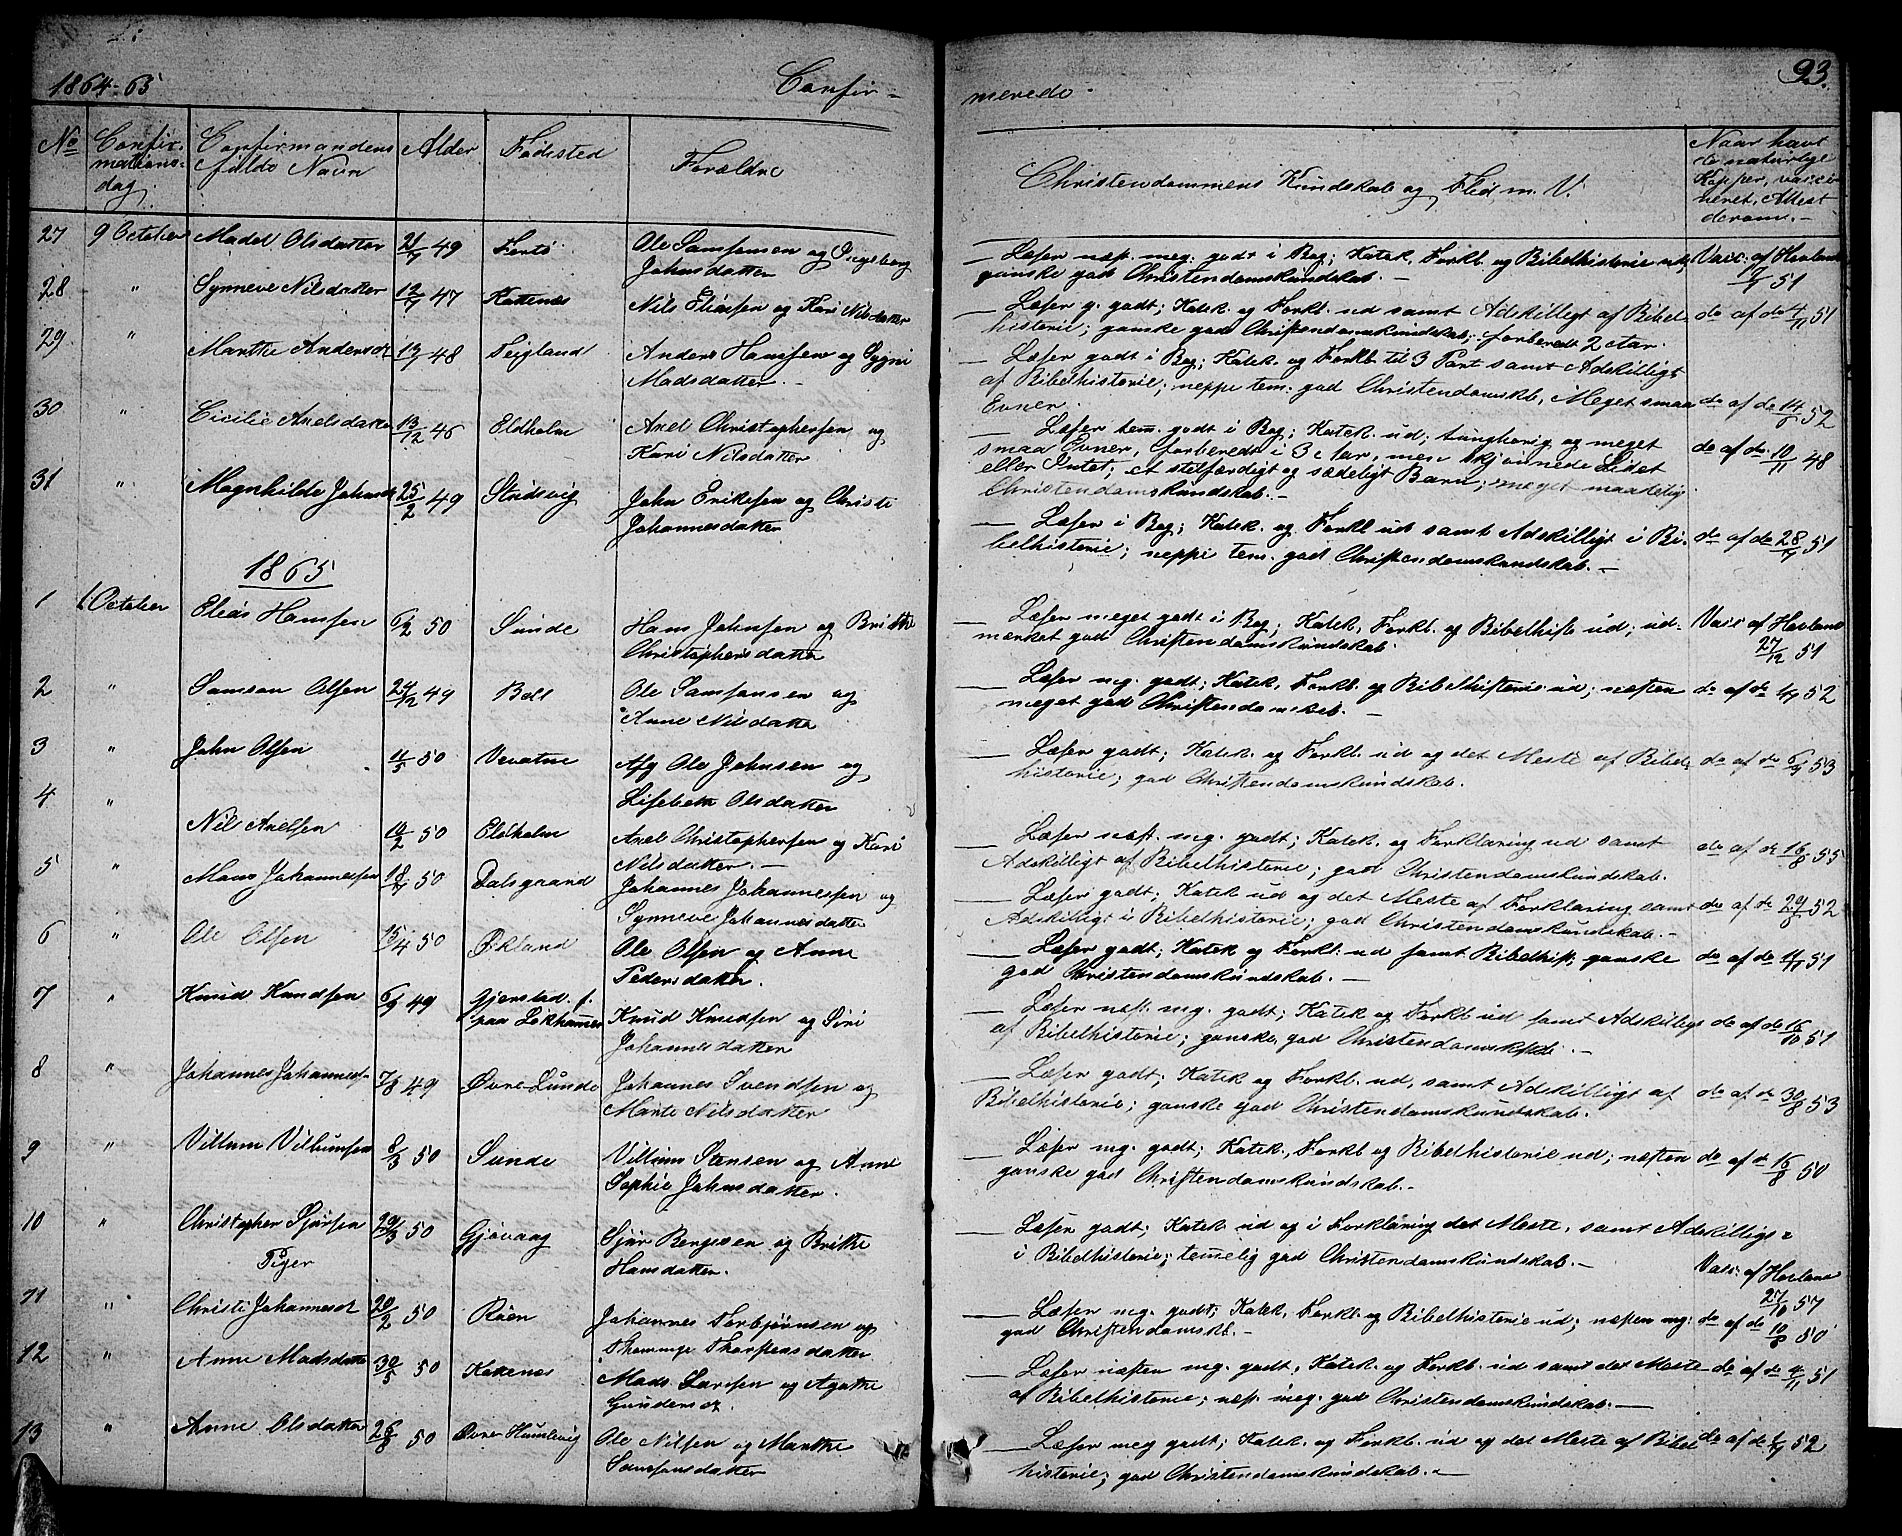 1864-65 Confir-
No Confir-
mations-
dag. Confirmandens
fulde Navn Alder Fødested Forældre
27 9 October Madel Olsdatter 21/7 49 Fertø Ole Samsonsen og Ingeborg
Johnsdatter
28 " Synneve Nilsdatter 12/7 47 Kattenæs Nils Eliasen og Kari Nilsdatter
29 " Marthe Andersdt 13/7 48 Teigland Anders Hansen og Sygni
Madsdatter. -
30 " Cicilie Axelsdatter 13/12 46 Eldholm Axel Christophersen og
Kari Nilsdatter
31 " Magnhilde Johnsdt 25/2 49 Johan Eriksen og Christi
Johannesdatter
1865
1 1 October Elias Hansen 6/2 50 Sunde Hans Johnsen og Britthe
Christophersdatter
2 " Samson Olsen 24/12 49 Boll Ole Samsonsen og
Anne Nilsdatter
3 " John Olsen 11/5 50 Vevatne Afg Ole Johnsen og
Lisebeth Olsdatter
4 " Nils Axelsen 10/2 50 Eldholm Axel Christophersen og Kari
Nilsdatter. -
5 " Mons Johannessen 18/7 50 Dalsgrand Johannes Johannessen og
Synneve Johannesdatter
6 " Ole Olsen 15/4 50 Økland Ole Olsen og Anne
Pedersdatter.
7 " Knud Knudsen 6/9 49 Gjerstad f.
paa Løkhamer Knud Knudsen og Siri
Johannesdatter
8 " Johannes Johannesf- 7/8 49 Øvre-Sunde Johannes Svendsen og
Marte Nilsdatter
9 " Villum Villumsen 8/3 50 Sunde Villum Stensen og Anne
Sophie Johnsdatter.
10 " Christopher Sjursen 29/3 50 Gjøvaag Sjur Bergesen og Brithe
Hansdatter.
Piger
11 " Christi Johannesdt 20/2 50 Røen Johannes Torbjørnsen og
12 " Anne Madsdatter 30/5 50 Kattenæs Mads Larssen og Agathe
Gundersdt.
13 " Anne Olsdatter 26/8 50 Øvre Humlevig Ole Nilsen og Marthe
Samsonsdatter
93.
merede.
Christendommens Kundskab og Flid, m. V. Naar havt
de naturlige
Kopper, vacci-
neret, Attest
derom. -
- Læser næst. meg. godt i Bog; Katek, Forkl. og Bibelhistorie ud; Vacc: af Hovland
ganske god Christendomskundskab. - 17/7 51
- Læser g. godt; Katek. og Forkl. ud samt Adskilligt af Bibel- do af do 4/11 51
historie; ganske god Christendomskundskab; forberedt 2 Aar.
- Læser godt i Bog; Katek. og Forkl. til 3 Part samt Adskilligt
af Bibelhistorie; neppe tem. god Christendomskb, Meget smaa do af do 14/6 52
Evner.
- Læser tem. godt i Bog; Katek. ud; tunghørig og meget
smaa Evner, forberedt i 3 Aar, men skjønnede Lidet do af do 10/11 48
eller Intet; et stilfærdigt og sædeligt Barn; meget maadelig
Christendomskundskab. -
- Læser i Bog; Katek. og Forkl ud samt Adskilligt i Bi- do af do 28/7 51
belhistorie; neppe tem. god Christendomskundskab. -
- Læser meget godt i Bog; Katek, Forkl. og Bibelhisto ud; ud- Vacc: af Hovland
mærket god Christendomskundskab. 27/12 51
- Læser mg. godt; Katek, Forkl. og Bibelhistorie ud; næsten do af do 4/7 52
meget god Christendomskb. -
- Læser godt; Katek. og Forkl. ud og det Meste af Bibel- do af do 6/7 53
historie; god Christendomskundskab.
- Læser næst. mg. godt; Katek. og Forklaring ud samt do af do 16/8 55
Adskilligt af Bibelhistorie; god Christendomskundskab.
- Læser godt; Katek ud og det Meste af Forklaring samt do af do 29/6 52
Adskilligt i Bibelhistorie; god Christendomskundskab. -
- Læser godt; Katek og Forkl. ud samt Bibelhist, ganske do af do 51
god Christendomskundskab. -
- Læser næst. mg. godt; Katek og Forkl ud samt Adskilligt do af do 16/10 51
af Bibelhistorie; ganske god Christendomskskb. -
- Læser godt; Katek og Forkl. ud, samt Adskilligt af do af do 30/8 53
Bibelhistorie; ganske god Christendomskundskab.
- Læser mg. godt; Katek., Forkl. og Bibelhistorie ud; næsten do af do 16/8 50
ganske god Christendomskundskab. -
- Læser godt; Katek ud og i Forklaring det Meste, samt Adskilligt
i Bibelhistorie; temelig god Christendomskundskab. - Vacc: af Hovland
27/10 57
- Læser mg. godt; Katek, Forkl. og Bibelhistorie ud; næsten mg: do af do 10/8 50
god Christendomskb. -
- Læser næsten mg. godt, Katek. og Forkl. ud samt det Meste do af do 4/11 51
af Bibelhistorie; næst. meg. god Christendomskundskab. -
- Læser meg godt; Katek. og Forkl. ud og det Meste af Bibel do af do 52
historie; god Christendomskundskab. -